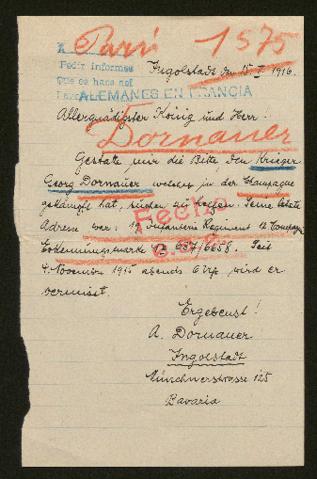 A París 1575
Pedir informes
que se hace nol
Ingolstadt den 15. I. 1916.
ALEMANES EN FRANCIA
Allergnädigster König und Herr!
Dornauer
Gestate mir die Bitte, den Krieger
Georg Dornauer welcher in der Champagne
gekämpft hat, suchen zu helfen. Seine letzte
Adresse war: 19 Infanterie Regiment 12 Compagnie
Fecha
Erkennungsmarke No 637/6658. Seit
4. November 1915 abends 6 Uhr, wird er
vermisst.
Ergebenst!
A. Dornauer
Ingolstadt
Münchnerstrasse 125
Bavaria